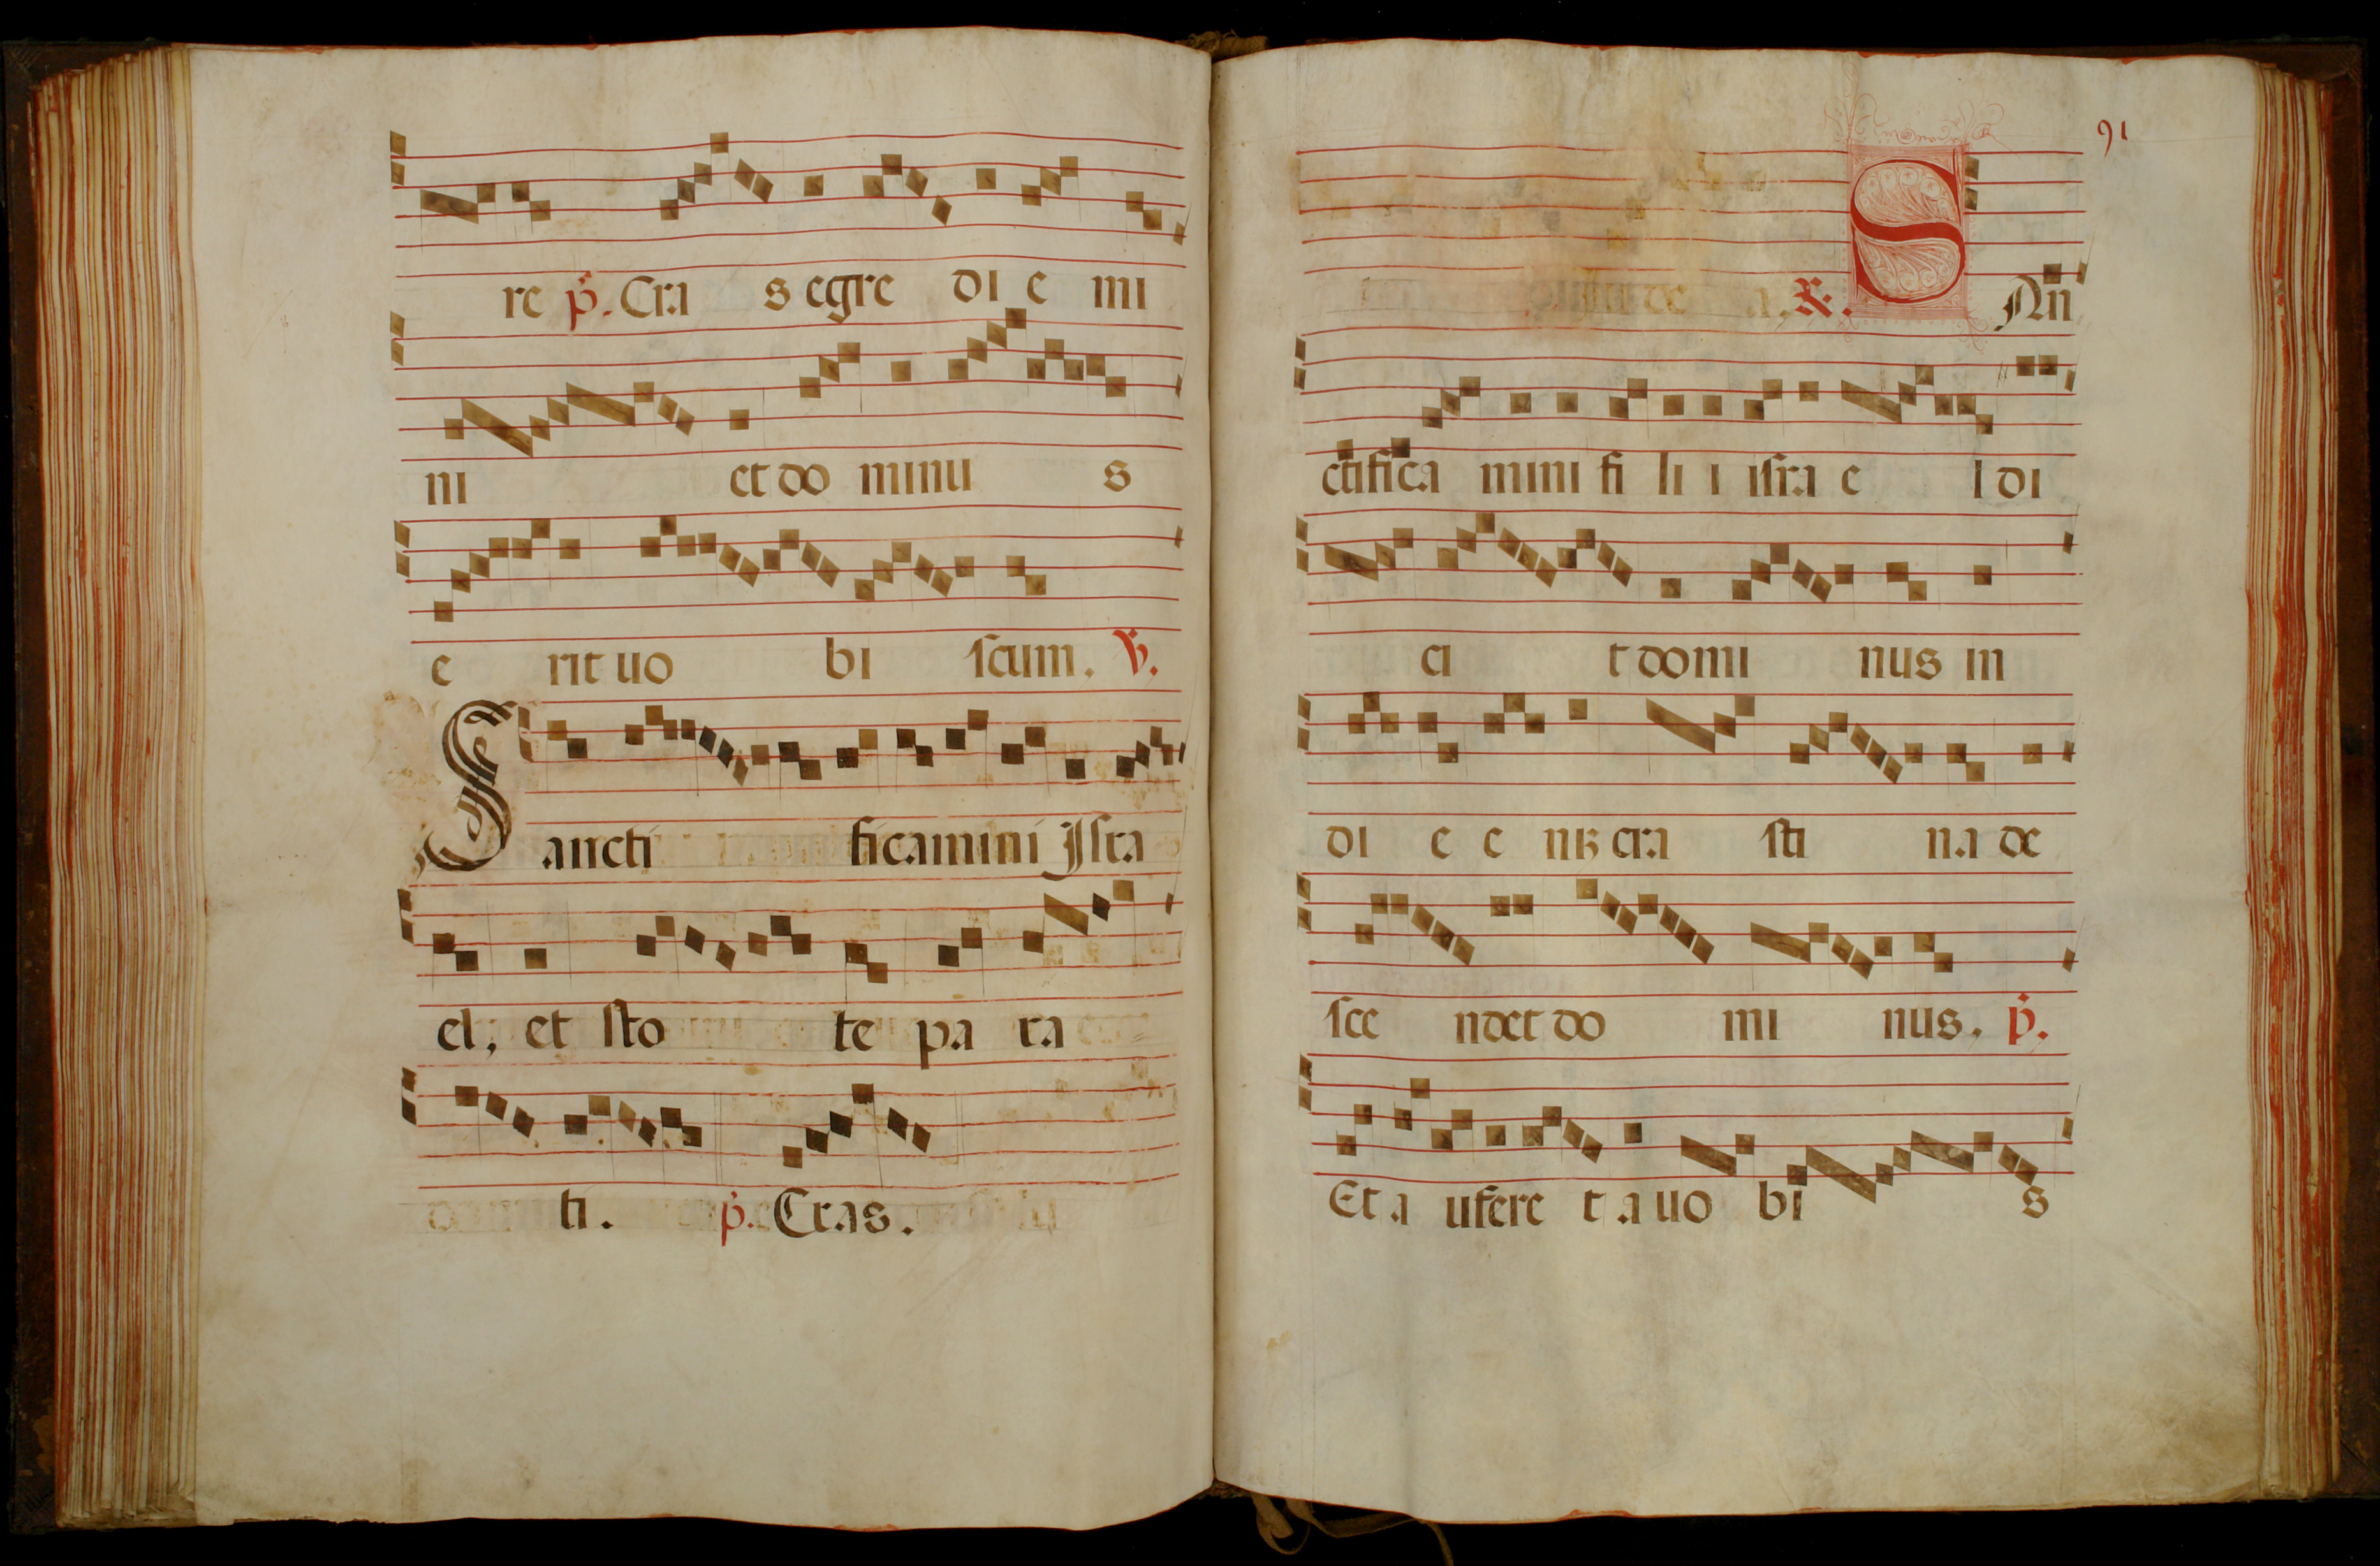 re p̄. Cra s egre di e mi
ni et do minu s
e rit uo bi scum. ℣.
Sancti ficamini Jsra
el, et sto te pa ra
ti. p̄. Cras.
91
de a. ℟. SAn
ctifica mini fi li i isra e l di
ci t domi nus in
di e c nꝫ cra sti na de
sce ndet do mi nus. p̄.
Et a ufere t a uo bi s